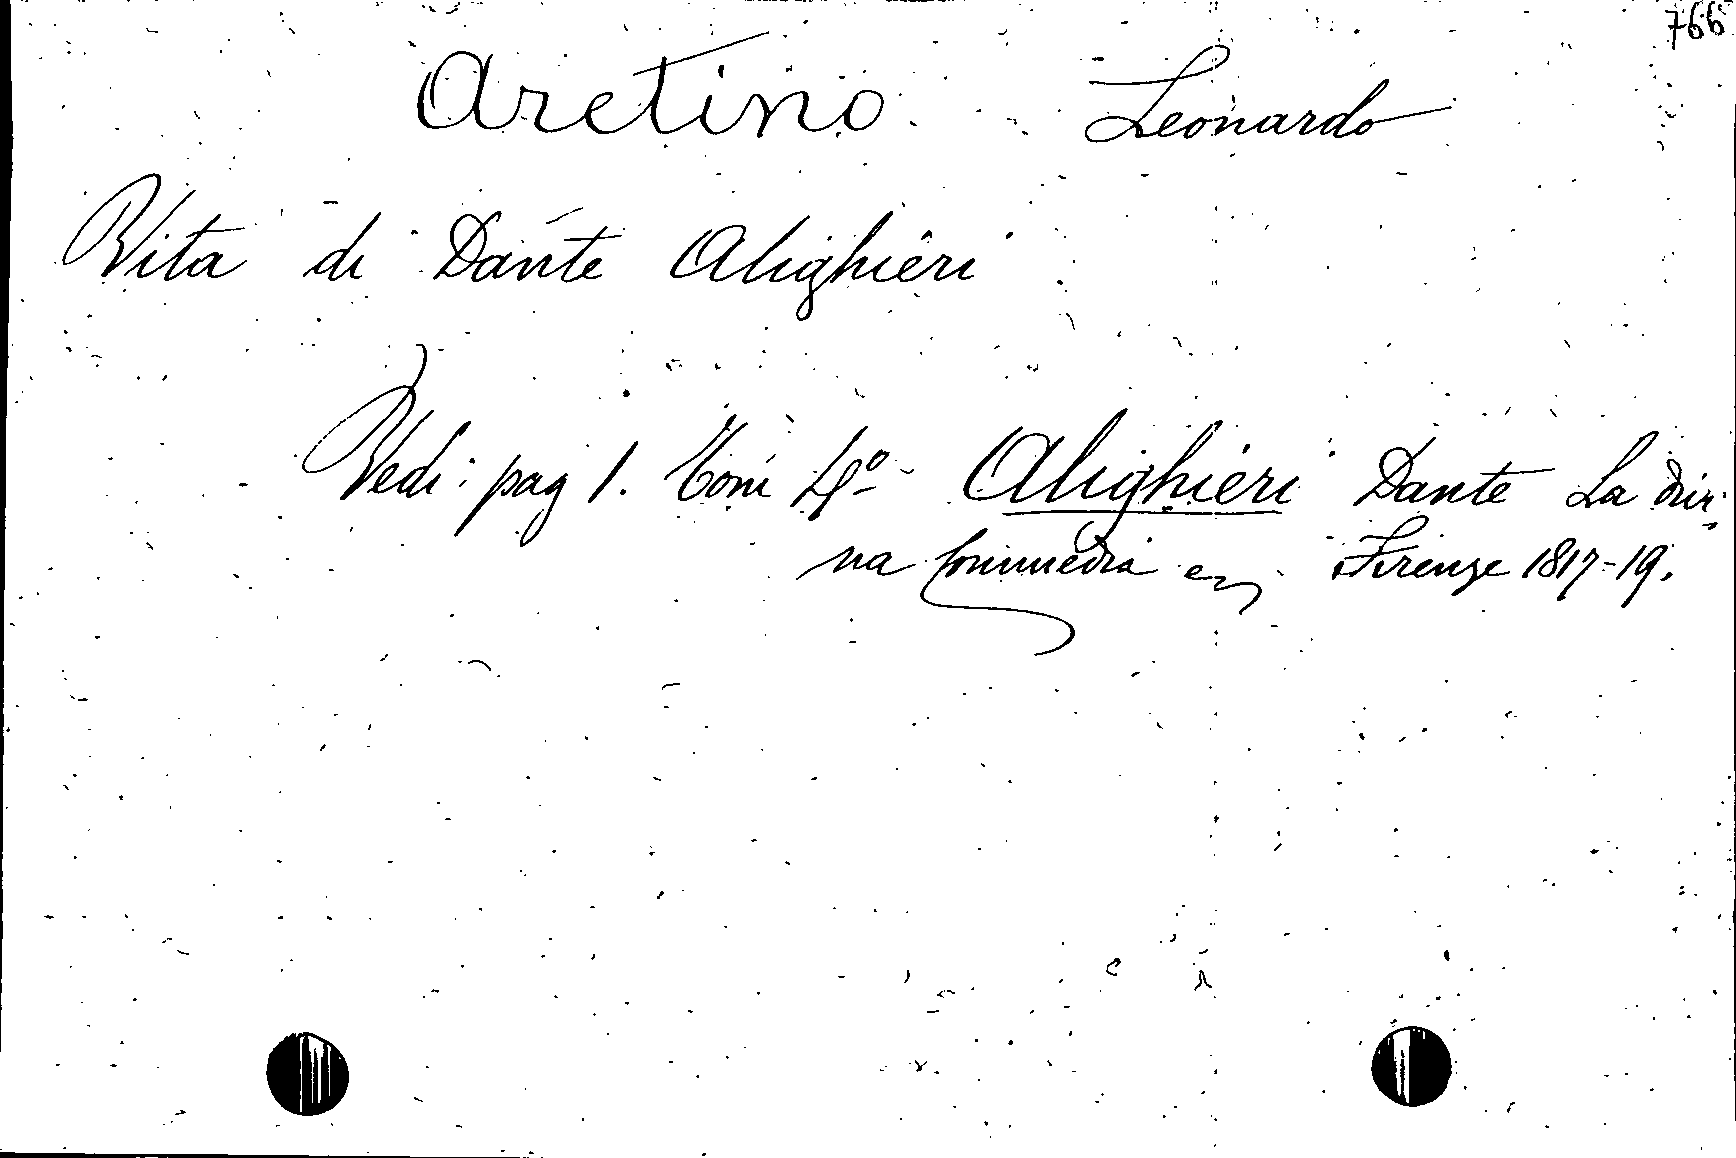 766
Aretino Leonardo
Vita di Dante Alighieri
Vedi: pag 1. Tom 4º - Alighieri Dante La divi-
na Commedia Firenze 1817-19.